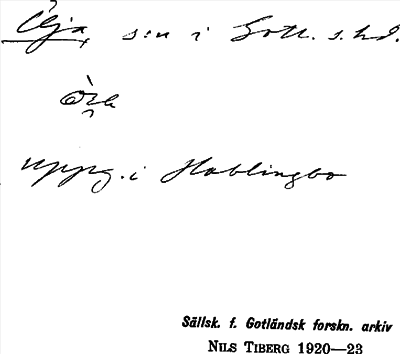 Öja, s:n i Gotl. s. hd.
uppg. i Hablingbo
Sällsk. f. Gotländsk forskn. arkiv
NILS TIBERG 1920—23